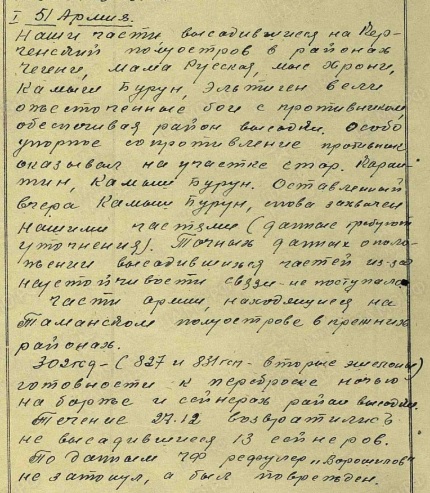 I 51 Армия.
Наши части высадившиеся на Кер-
ченский полуостров в районах
Чегене, Мама Русская, мыс Хрони,
Камыш Бурун, Эльтиген вели
ожесточенные бои с противником,
обеспечивая район высадки. Особо
упорное сопротивление противник
оказывал на участке стар. Каран-
тин, Камыш Бурун. Оставленный
вчера Камыш Бурун, снова захвачен
нашими частями (данные требуют
уточнения). Точных данных о поло-
жении высадившихся частей из-за
неустойчивости связи - не поступало
части армии, находящиеся на
Таманском полуострове в прежних
районах.
302 гсд - (827 и 831 гсп - вторые эшелоны)
готовности к переброске ночью
на барже и сейнерах район высадки.
Течение 27.12 возвратились
не высадившиеся 13 сейнеров.
По данным ЧФ рефулер "Ворошилов"
не затонул, а был поврежден.